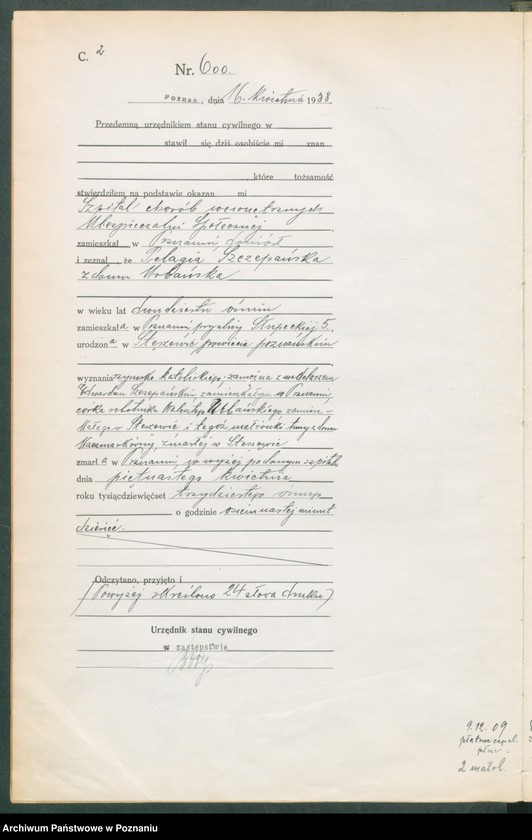 C. 2
Nr. 600.
Poznań, dnia 16. kwietnia 1938
Przedemną urzędnikiem stanu cywilnego w
stawił się dziś osobiście mi znan
, które tożsamość
stwierdziłem na podstawie okazan mi
Szpital chorób wewnętrznych
Ubezpieczalni Społecznej
zamieszkał w Poznaniu doniósł
i zeznał, że Pelagia Szczepańska
z domu Urbańska
w wieku lat dwudziestu ośmiu
zamieszkała w Poznaniu przy ulicy Słupeckiej 5.
urodzona w Stęszewie powiecie poznańskim
wyznania rzymsko katolickiego, zamężna z modelarzem
Edwardem Szczepańskim, zamieszkałym w Poznaniu
córka robotnika Walentego Urbańskiego zamie-
szkałego w Stęszewie i tegoż małżonki z domu
zmarłej w Stęszewie
zmarła w Poznaniu w wyżej podanym szpitalu
dnia piętnastego kwietnia
roku tysiącdziewięćset trzydziestego ósmego
o godzinie osiemnastej minut
dziesięć.
Odczytano, przyjęto i
(Powyżej skreślono 24 słowa druku)
Urzędnik stanu cywilnego
w zastępstwie
9.12.09
2 małol.
Archiwum Państwowe w Poznaniu